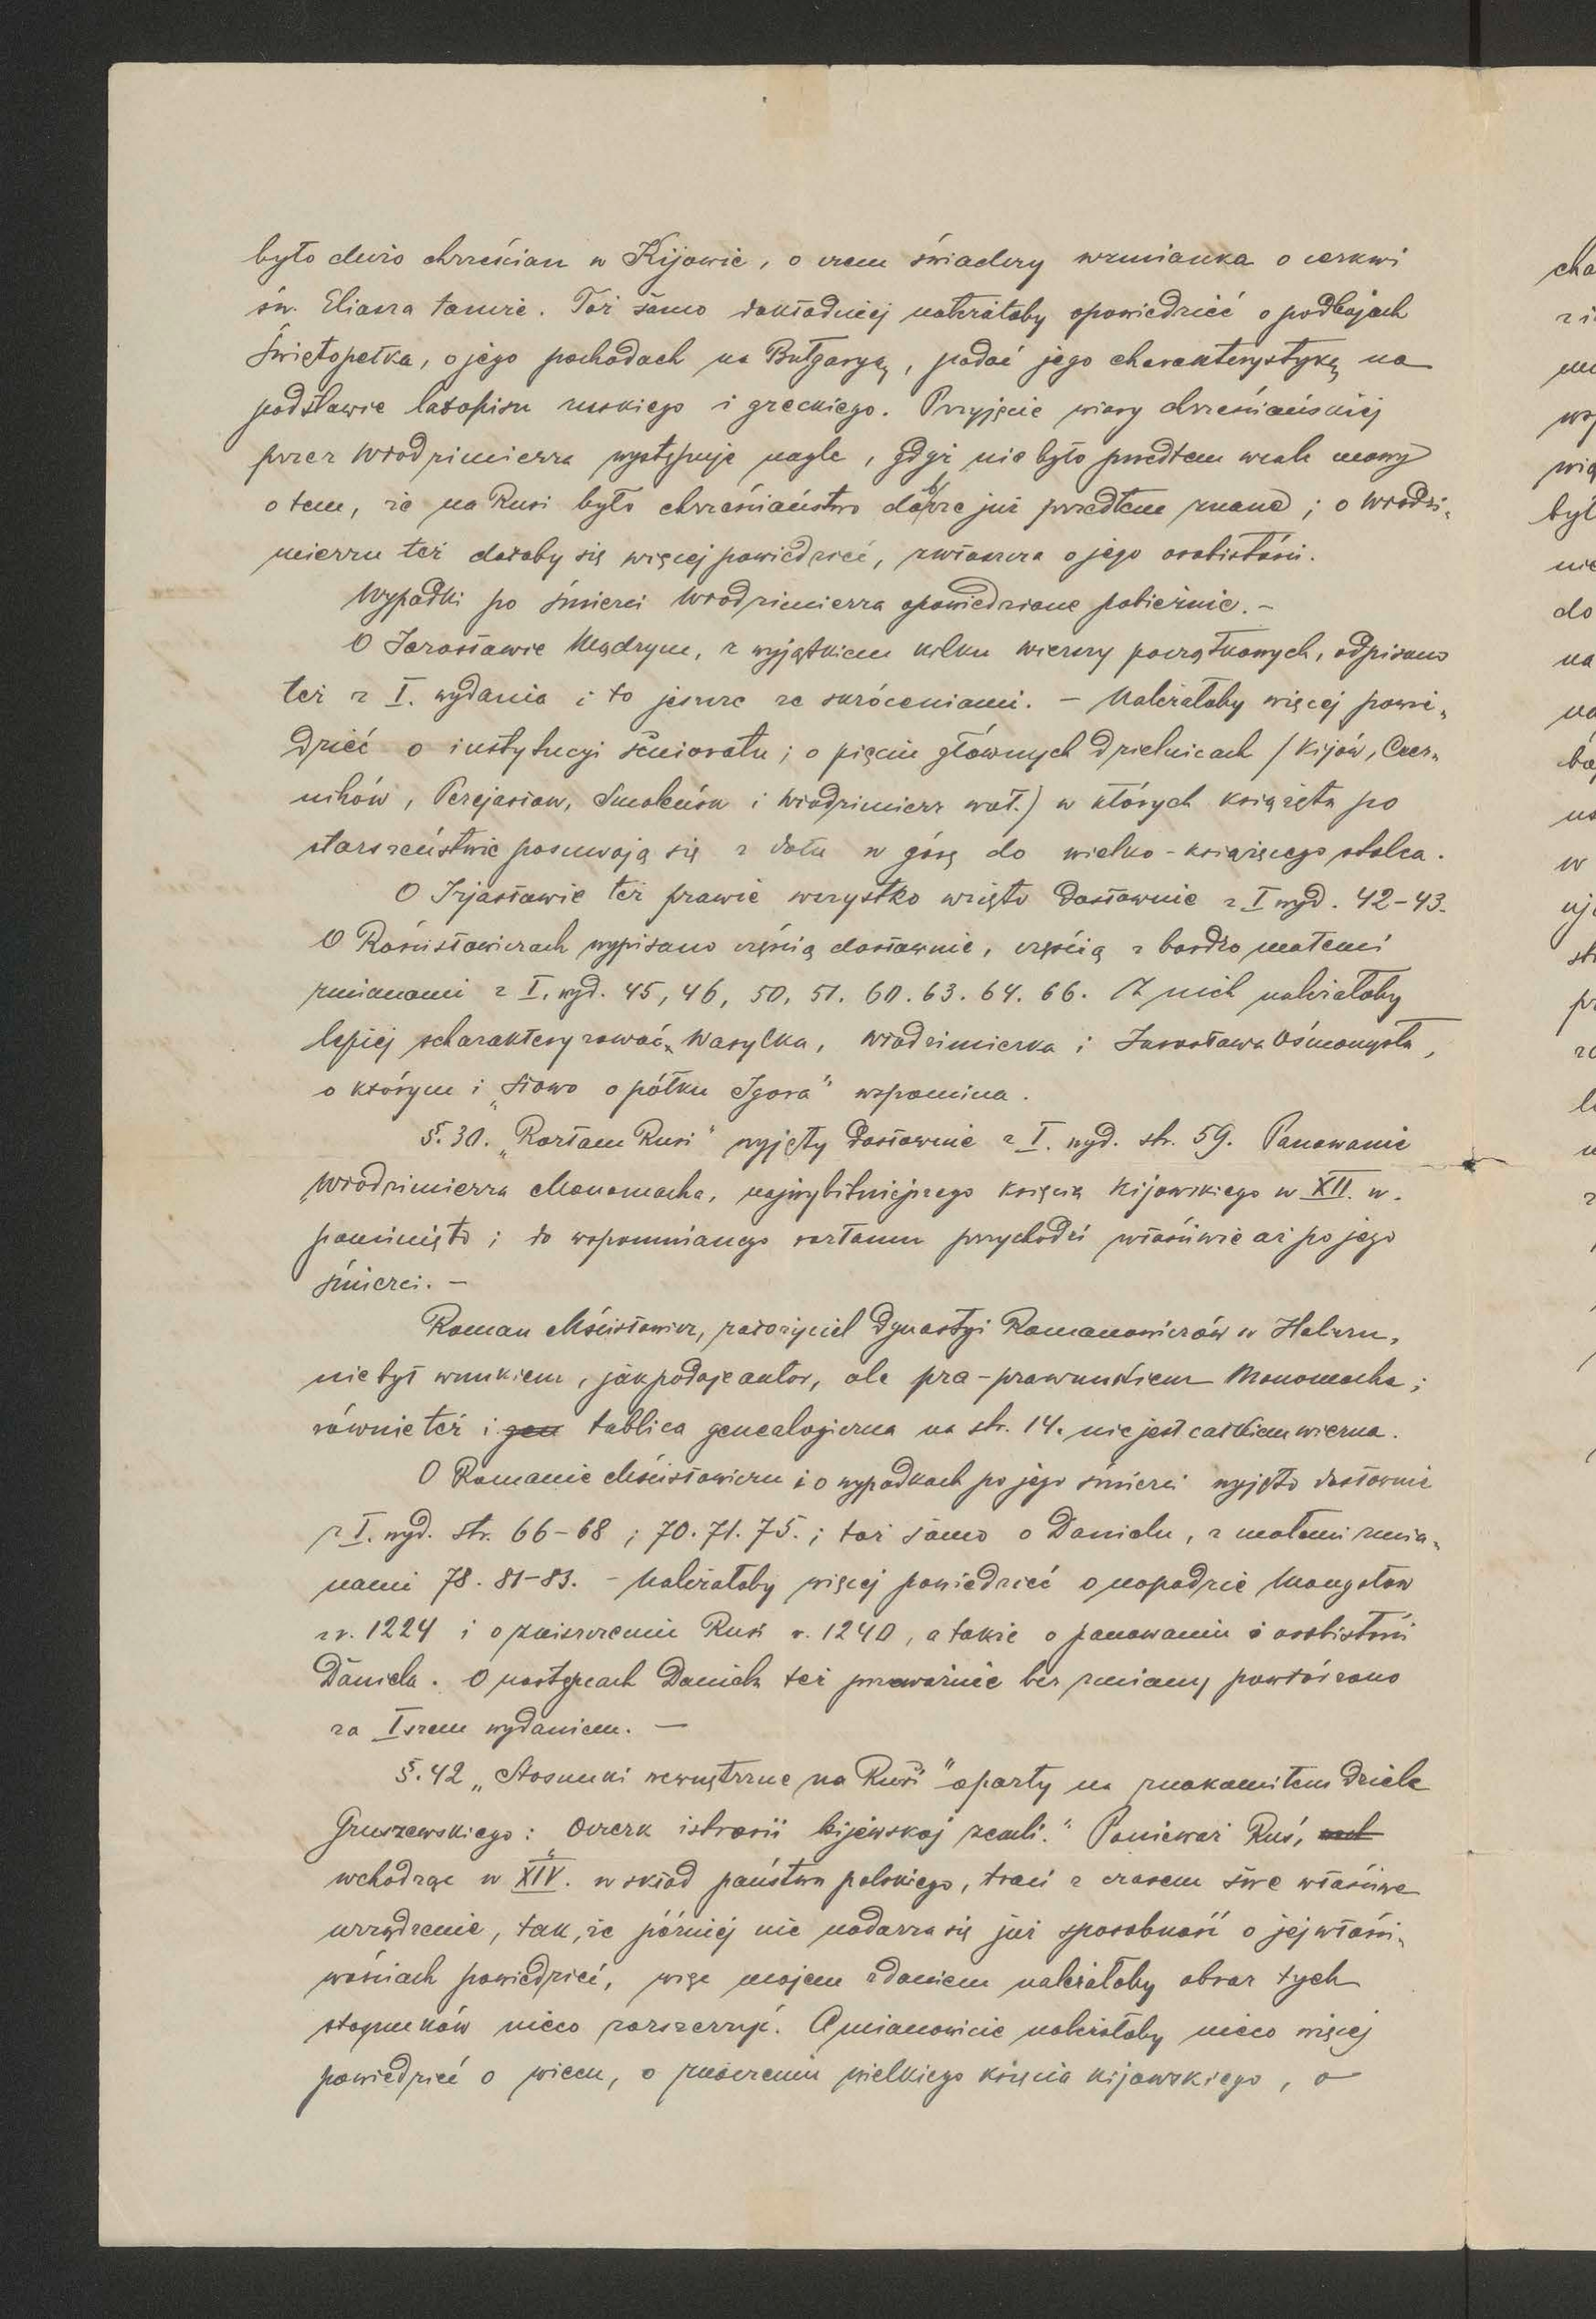 było dużo chrześcian w Kijowie, o czem świadczy wzmianka o cerkwi
św. Eliasza tamże. Toż samo dokładniej należałoby opowiedzieć o podbojach
Świętopełka, o jego pochodach na Bułgaryą, podać jego charakterystykę na
podstawie latopisu ruskiego i greckiego. Przyjęcie wiary chrześniańskiej
przez Włodzimierza występuje nagle, gdyż nie było przedtem wcale mowy
o tem, że na Rusi było chrześniaństwo dobrze już przedtem znane; o Włodzi-
mierzu też dałoby się więcej powiedzieć, zwłaszcza o jego osobistości.
Wypadki po śmierci Włodzimierza opowiedziane pobieżnie. –
O Jarosławie Mądrym, z wyjątkiem kilku wierszy początkowych, odpisano
też z I. wydania i to jeszcze ze skróceniami. – Należałoby więcej powie-
dzieć o instytucyi senioratu; o pięciu głównych dzielnicach (Kijów, Czer-
nihów, Perejasław, Smoleńsk i Włodzimierz woł.) w których książęta po
starszeństwie posuwają się z dołu w górę do wielko-książęcego stolca.
O Izjasławie też prawie wszystko wzięto dosłownie z I wyd. 42-43.
O Rościsławiczach wypisano częścią dosłownie, częścią z bardzo małemi
zmianami z I. wyd. 45, 46, 50, 51. 60. 63. 64. 66. Z nich należałoby
lepiej scharakteryzować Wasylka, Włodzimierka i Jarosława Ośmomysła,
o którym i „Słowo o półku Igora" wspomina.
§. 30. „Rozłam Rusi" wyjęty dosłownie z I. wyd. str. 59. Panowanie
Włodzimierza Monomacha, najwybitniejszego księcia kijowskiego w XII. w.
pominięto; do wspomnianego rozłamu przychodzi właściwie aż po jego
śmierci. –
Roman Mścisławicz, założyciel dynastyi Romanowiczów w Haliczu,
nie był wnukiem, jak podaje autor, ale pra-prawnukiem Monomacha;
równie też i gen tablica genealogiczna na str. 14. nie jest całkiem wierna.
O Romanie Mścisławiczu i o wypadkach po jego śmierci wyjęto dosłownie
z I. wyd. str. 66-68; 70. 71. 75.; toż samo o Danielu, z małemi zmia-
nami 78. 81-83. – Należałoby więcej powiedzieć o napadzie Mongołów
z r. 1224 i o zniszczeniu Rusi r. 1240, a także o panowaniu i osobistości
Daniela. O następcach Daniela też przeważnie bez zmiany powtórzono
za Iszem wydaniem. –
§. 42 „Stosunki wewnętrzne na Rusi" oparty na znakomitem dziele
Gruszewskiego: „Oczerk istorii kijewskoj zemli." Ponieważ Ruś,
wchodząc w XIV. w skład państwa polskiego, traci z czasem swe właściwe
urządzenie, tak, że później nie nadarza się już sposobność o jej właści-
wościach powiedzieć, więc mojem zdaniem należałoby obraz tych
stosunków nieco rozszerzyć. A mianowicie należałoby nieco więcej
powiedzieć o wiecu, o znaczeniu wielkiego księcia kijowskiego, o